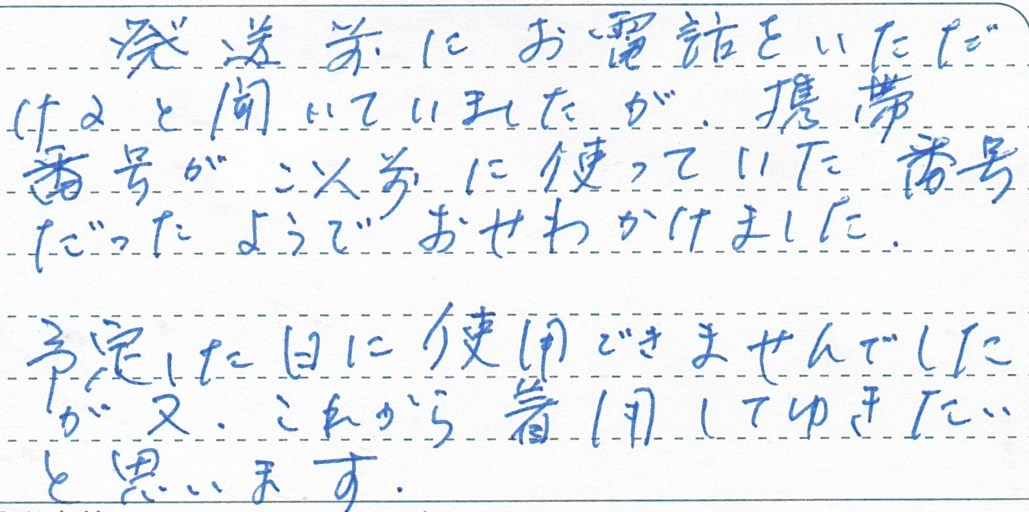 発送前にお電話をいただ
けると聞いていましたが、携帯
番号が以前に使っていた番号
だったようでおせわかけました.
予定した日に使用できませんでした
が又、これから着用してゆきたい
と思います.